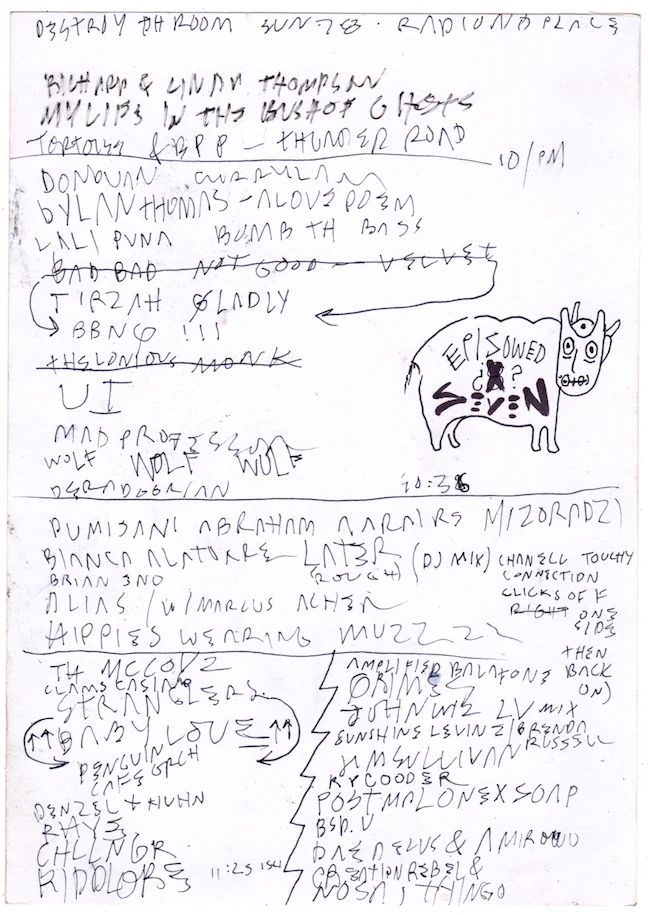 DESTROY TH ROOM SUN 28 . RADIO NO PLACE
RICHARD & LINDA THOMPSON
MY LIFE IN THE BUSH OF GHOSTS
TORTOISE & BPB — THUNDER ROAD
10/PM
DONOVAN
DYLAN THOMAS - A LOVE POEM
LALI PUNA BOMB TH BASS
BAD BAD NOT GOOD — VELVET
TIRZAH GLADLY
BBNG !!!
THELONIOUS MONK
UI
EPISOWED
¿X?
SEVEN
MAD PROFESSOR
WOLF WOLF WOLF
DERADOORIAN
10:36
DUMISANI ABRAHAM MARAIRE
BIANCA ALATORRE LATER (DJ MIX)
(ROUGH)
BRIAN ENO
ALIAS / W/ MARCUS ACHER
HIPPIES WEARING MUZZZZ
CHANELL TOUCHY
CONNECTION
CLICKS OF F
RIGHT ONE
SIDE
THEN
BACK
ON)
TH MCCOYZ
CLAMS CASINO
STRANGLERS.
↑↑ BABY LOVE ↑↑
PENGUIN
CAFE ORCH
DENZEL +
RAYS
CHLLNGR
RIDDLORE
11:25
AMPLIFIED BALAFONE
GRIMES
JOHNWIZ LV MIX
SUNSHINE LEVINE / BRENDA
RUSSELL
JIM SULLIVAN
RY COODER
POSTMALONE X SOAP
BSD.U
DAEDELUS & AMIR
CREATION REBEL &
NOSAJ THING